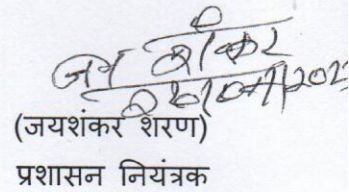 जय शंकर
(जयशंकर शरण)
प्रशासन नियंत्रक